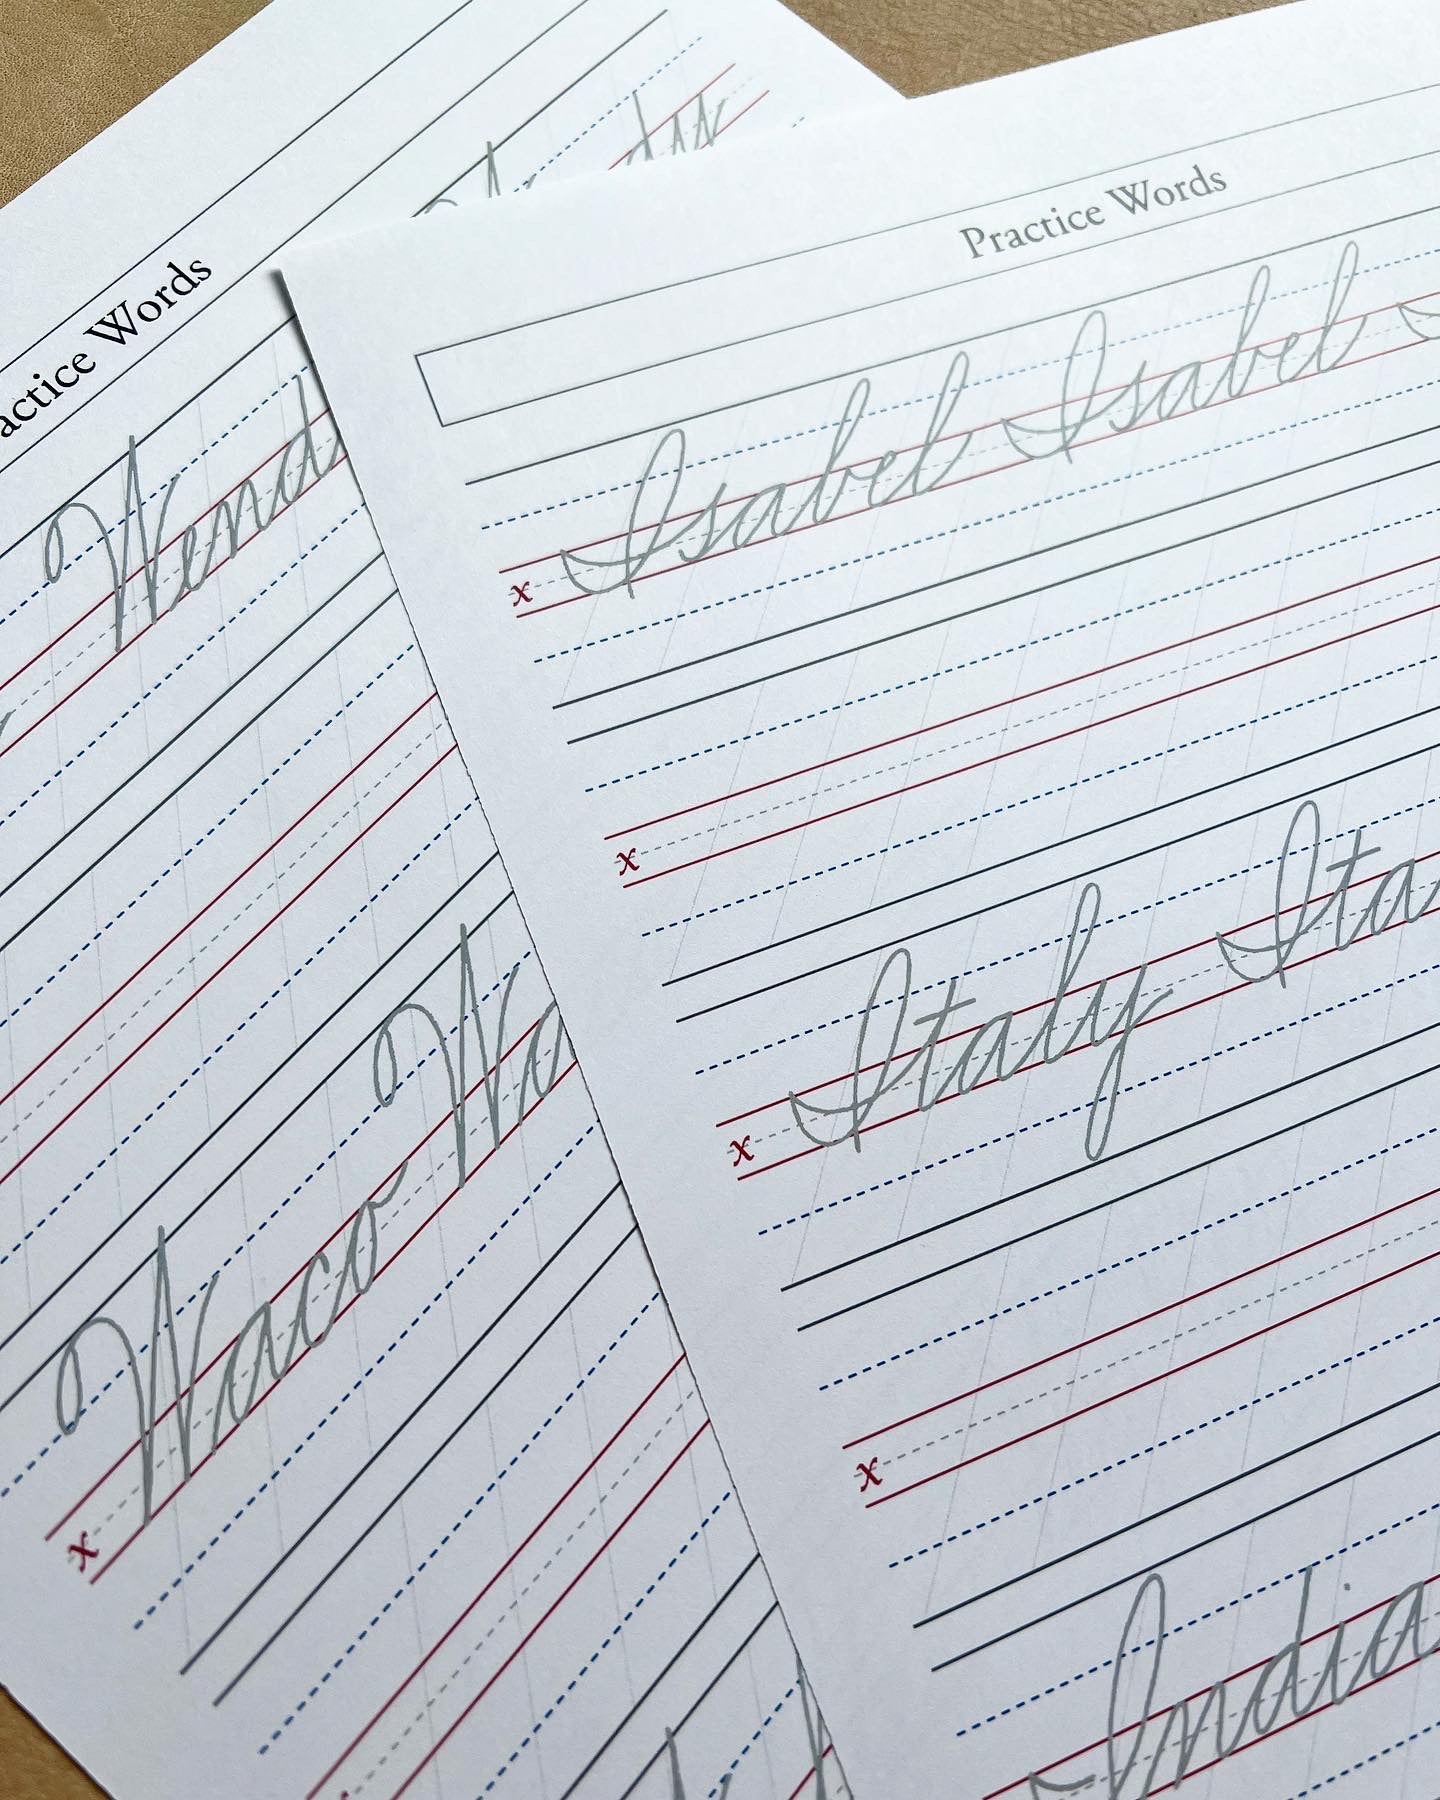 Practice Words
Isabel Isabel
x
x
Italy Ita
x
x
India
actice Words
Wend
Waco Wa
x